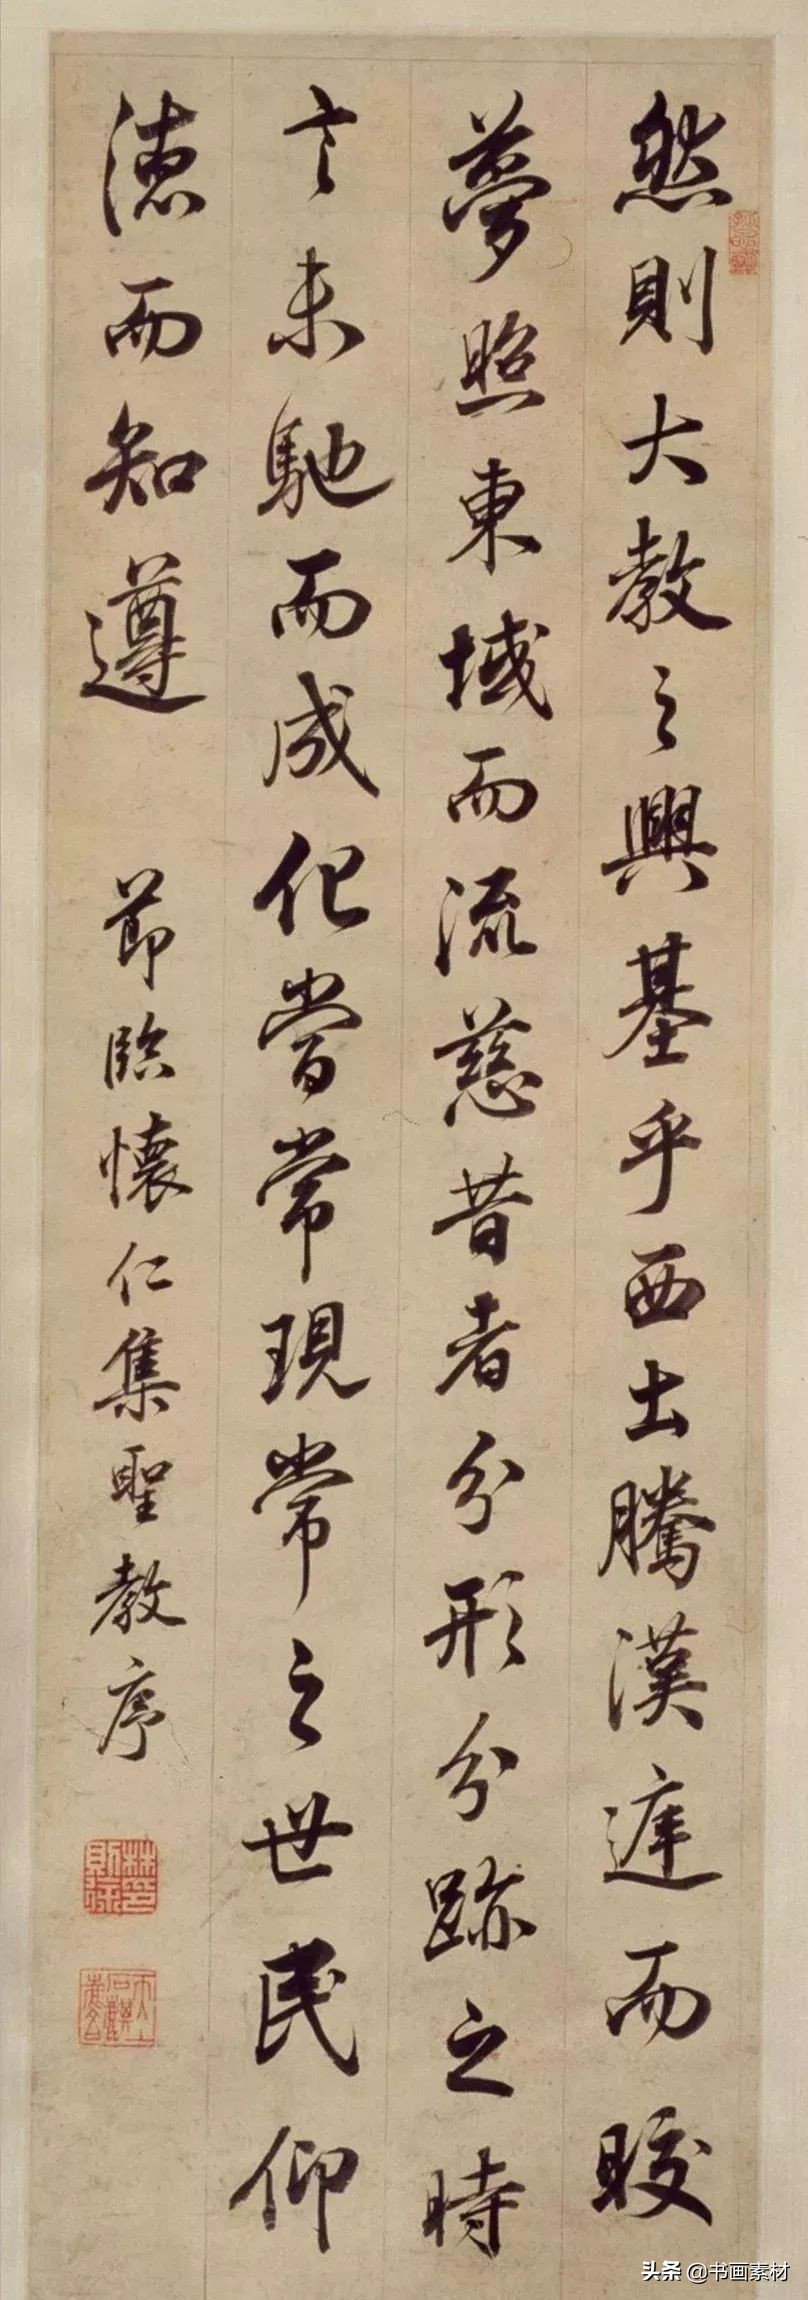 然則大教之興基乎西土騰漢庭而皎
夢照東域而流慈昔者分形分跡之時
言未馳而成化當常現常之世民仰
德而知遵　節臨懷仁集聖教序
林則徐印
头条 @书画素材